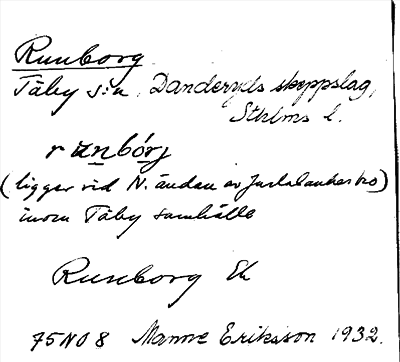 Runborg
Täby s:n, Danderyds skeppslag,
Sthlms l.
runbórj
(ligger vid N. ändan av Jarlabankes bro)
inom Täby samhälle
Runborg Ek
75NO8 Manne Eriksson 1932.